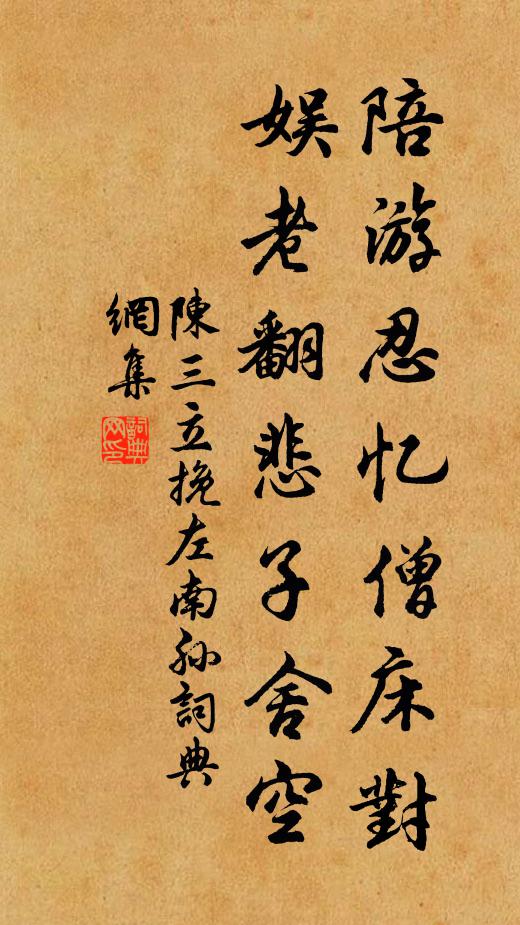 陪游忍忆僧床對
娱老翻悲子舍空
陳三立挽左南孙詞典
網集
詞典網印